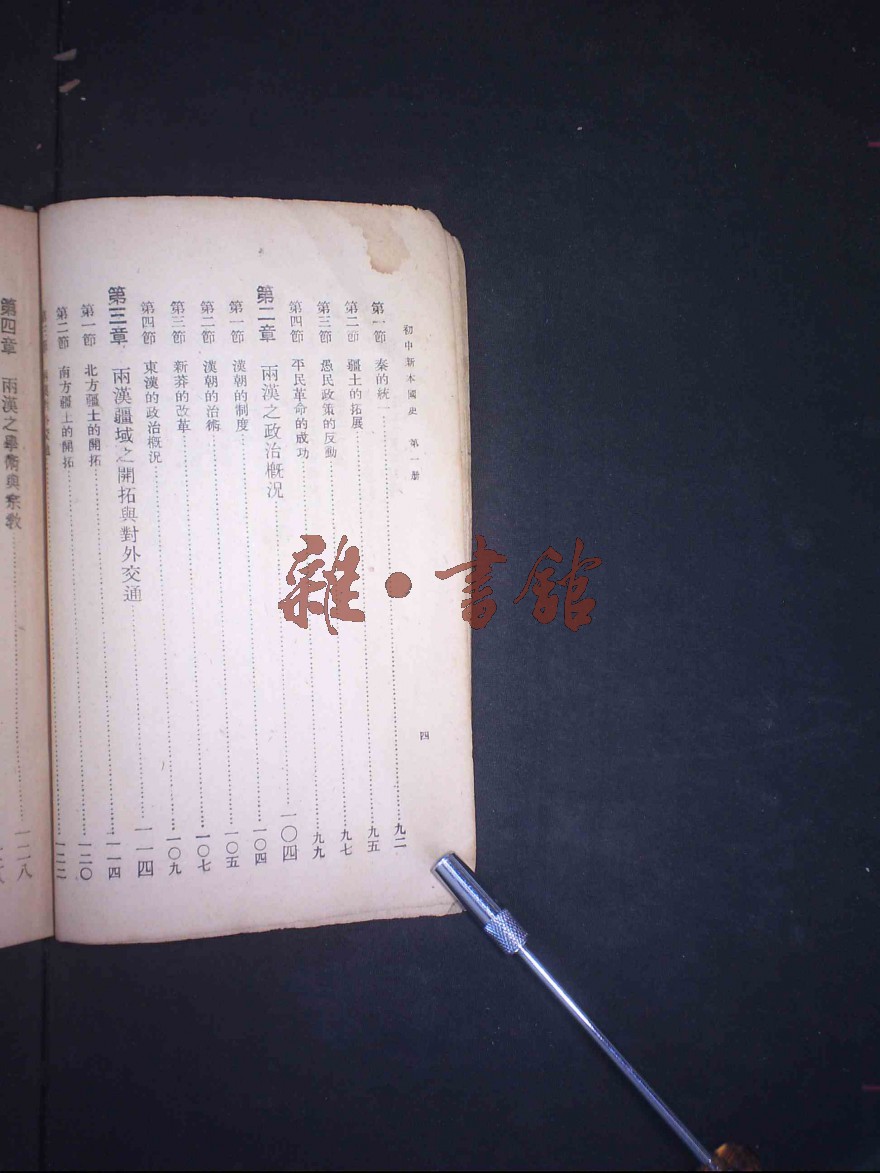 初中新本國史 第一册
四
第一節 秦的統一……九二
第二節 疆土的拓展……九五
第三節 愚民政策的反動……九七
第四節 平民革命的成功……九九
第二章 兩漢之政治概況……一〇四
第一節 漢朝的制度……一〇四
第二節 漢朝的治術……一〇五
第三節 新莽的改革……一〇七
第四節 東漢的政治概況……一〇九
第三章 兩漢疆域之開拓與對外交通……一一四
第一節 北方疆土的開拓……一一四
第二節 南方疆土的開拓……一二〇
……一二二
第四章 兩漢之學術與宗教……一二八
雜·書館